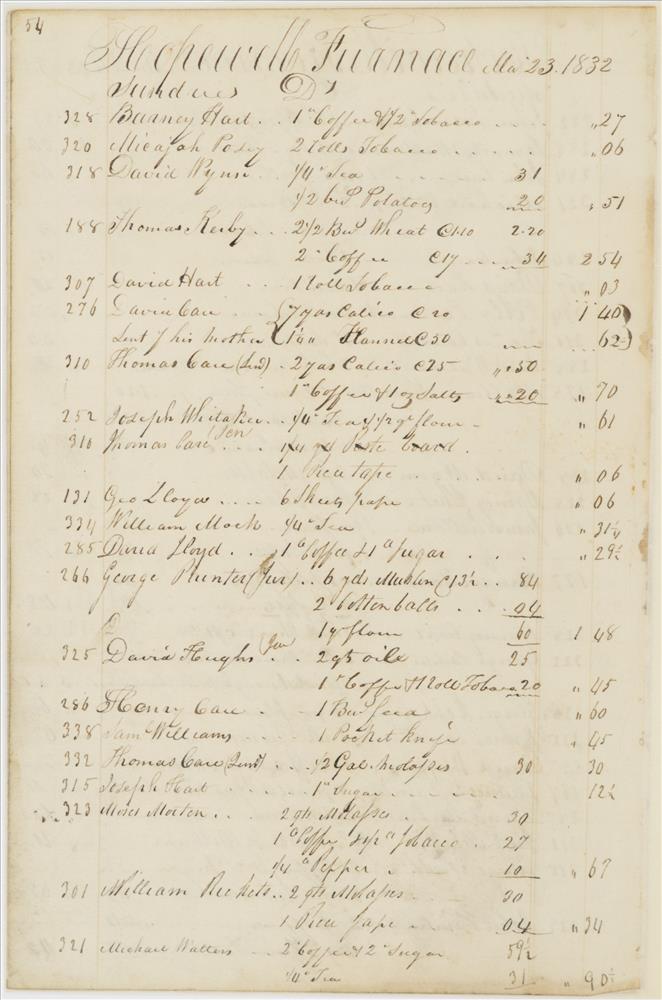 54
Hopewell Furnace Mar 23. 1832
Sundries Drs
328 Barney Hart . . 1 " Coffee & 1/2 " Tobacco . . . . " 27
320 Micajah Posey 2 rolls Tobacco . . . . . " 06
318 David Wynn . . 1/4 " Tea 31
1/2 bus Potatoes 20 " 51
188 Thomas Kerby . . . 2 1/2 Bus Wheat C1.10 2.20
2 " Coffee C17 . . . 34 2 54
307 David Hart . . . 1 Roll Tobacco " 03
276 David Care . . { 7 yds Calico C 20 1 40 }
Sent p his mother { 1 1/4 " Flannel C 50 . . . 62 }
310 Thomas Care . . 2 yds Calico C25 " 50
1 " Coffee & 1 oz Salts " 20 " 70
252 Joseph Whitaker . . 1/4 " Tea & 1/2 qr flour - " 61
310 Thomas Care Sen . . . 1/4 yd Paste board .
1 Piece tape . " 06
131 Geo Lloyd . . . . 6 Sheets pape " 06
334 William Mock 1/4 " Tea " 31 1/4
285 David Lloyd . . 1 " Coffee & 1 " Sugar . . . " 29 1/2
266 George Plunter (Jur) . . 6 yds Muslin C 13 1/2 . . 84
2 Cotton balls . . 04
1 qr flour 60 1 48
325 David Hughs (Jur . . 2 qts oile 25
1 " Coffee & 1 Roll Tobacco 20 " 45
286 Henry Care . . 1 Bus Seed " 60
338 Saml Williams 1 Pocket Knife " 45
332 Thomas Care . . . 1/2 Gal. Molasses 30 30
315 Joseph Hart . . . . . 1 " Sugar . . . . . 12 1/2
323 Moses Morton . . . 2 qts Molasses . 30
1 " Coffee & 1/2 " Tobacco . 27
1/4 " Pepper . . 10 " 67
301 William Rickets . . 2 qts Molasses . . 30
1 Piece Tape . . . 04 " 34
321 Michael Watters . . 2 " Coffee & 2 " Sugar 59 1/2
1/4 " Tea 31 " 90 1/2